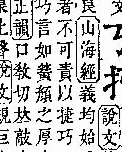 說文
山海經義均始
者不可責以捷巧
巧言如簧顏之厚
正韻口敎切𠀤敲